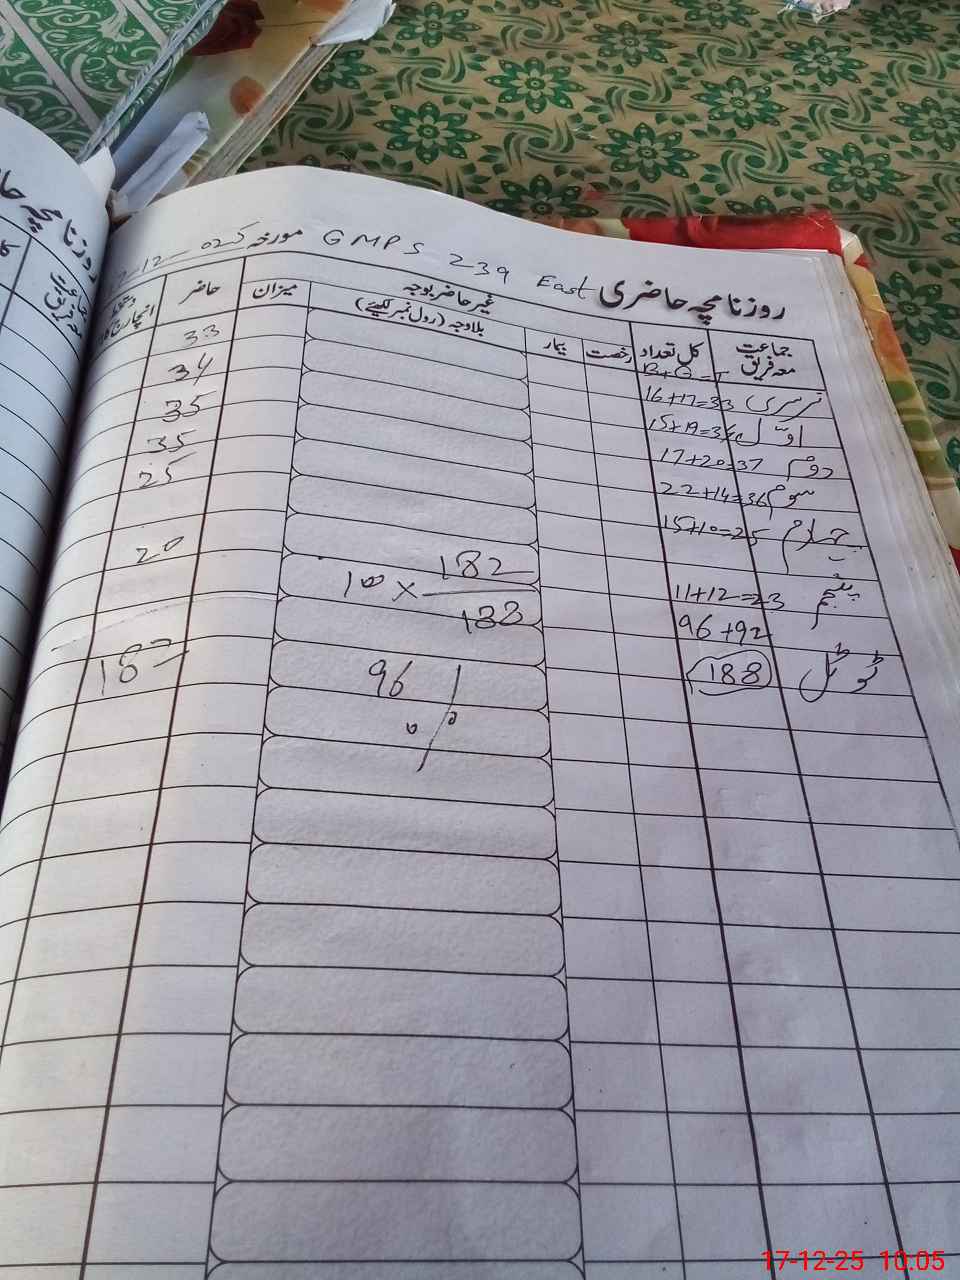 روزنامچہ حاضری
GMPS 239 East مورخہ 12-025
جماعت معہ فریق
کل تعداد
رخصت
بیمار
غیر حاضر بوجہ
بلاوجہ (رول نمبر لکھیئے)
میزان
حاضر
B+G=T
نرسری 16+17=33 33
اوّل 15+19=34 34
دوم 17+20=37 35
سوم 22+14=36 35
چہارم 15+10=25 25
پنجم 11+12=23 20
96+92
ٹوٹل 188 182
100 × 182
188
96 %
روزنامچہ حا
جماعت
معہ فریق
17-12-25 10.05